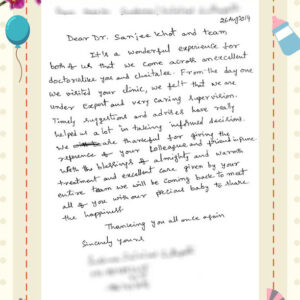 26 Aug 2019
Dear Dr. Sanjee Khot and team
It is a wonderful experience for
both of us that we come across an excellent
doctors like you and
From the day one
we visited your clinic, we felt that we are
under expert and very caring supervision.
Timely suggestions and advises have really
helped us a lot in taking informed decisions.
We are thankful for giving the
reference of your colleague and friend in pune
With the blessings of almighty and warmth
treatment and excellent care given by your
entire team we will be coming back to meet
all of you with our precious baby to share
the happiness.
Thanking you all once again
Sincerely yours